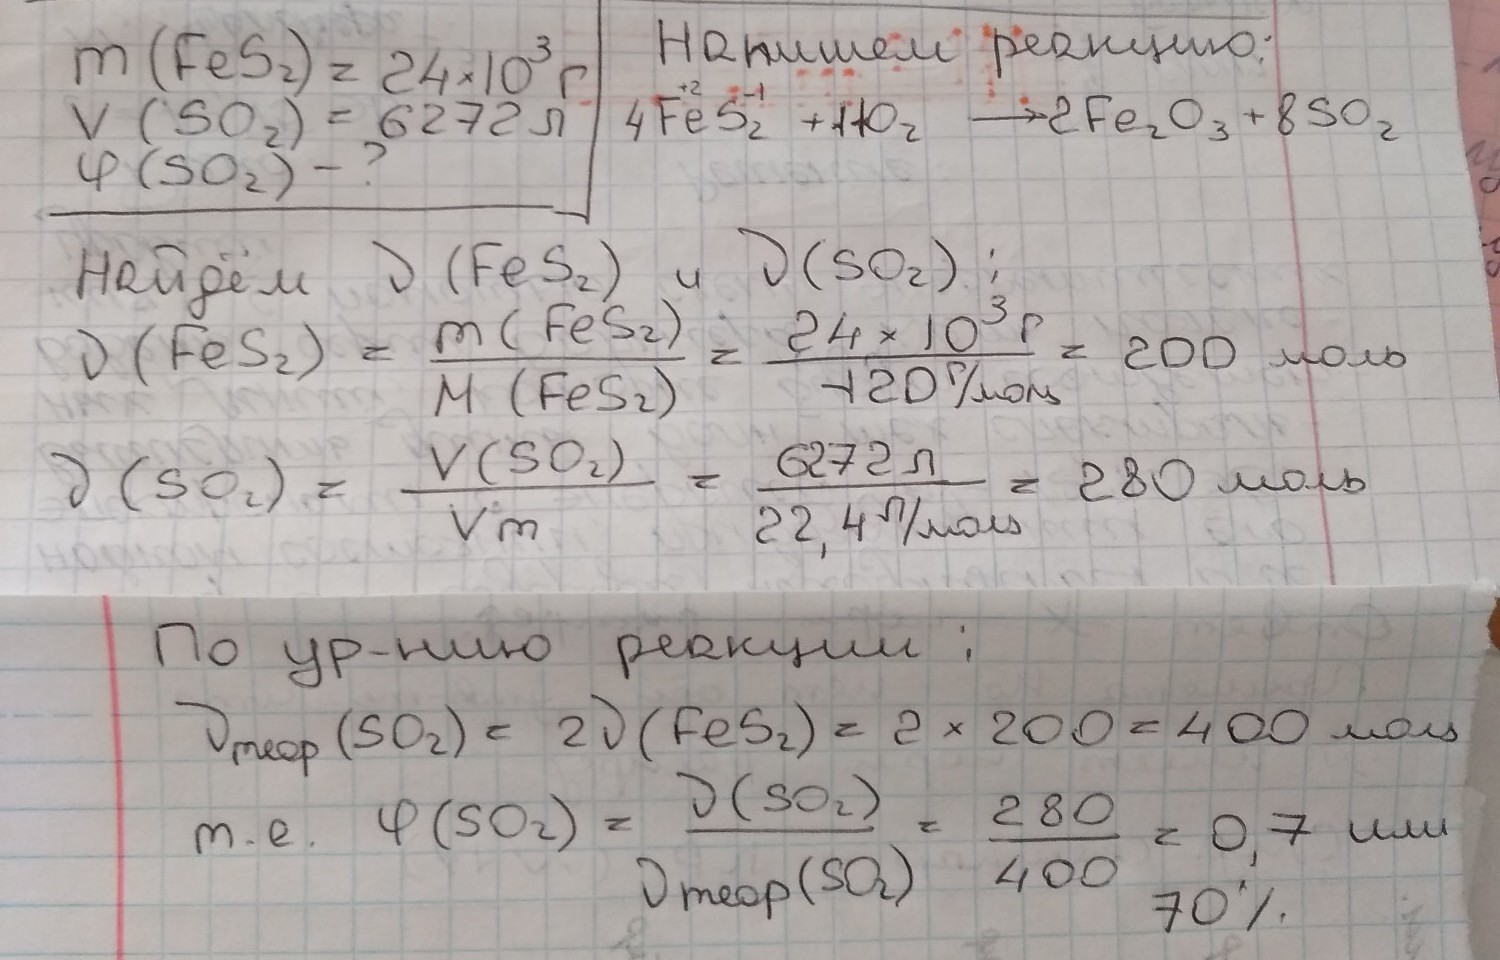 m(FeS₂) = 24×10³ г
V(SO₂) = 6272 л
φ(SO₂) - ?
Напишем реакцию:
4Fe⁺²S₂⁻¹ + 11O₂ → 2Fe₂O₃ + 8SO₂
Найдём ν(FeS₂) и ν(SO₂):
ν(FeS₂) = m(FeS₂)/M(FeS₂) = 24×10³ г/120 г/моль = 200 моль
ν(SO₂) = V(SO₂)/Vm = 6272 л/22,4 л/моль = 280 моль
По ур-нию реакции:
νтеор(SO₂) = 2ν(FeS₂) = 2 × 200 = 400 моль
т.е. φ(SO₂) = ν(SO₂)/νтеор(SO₂) = 280/400 = 0,7 или
70%.